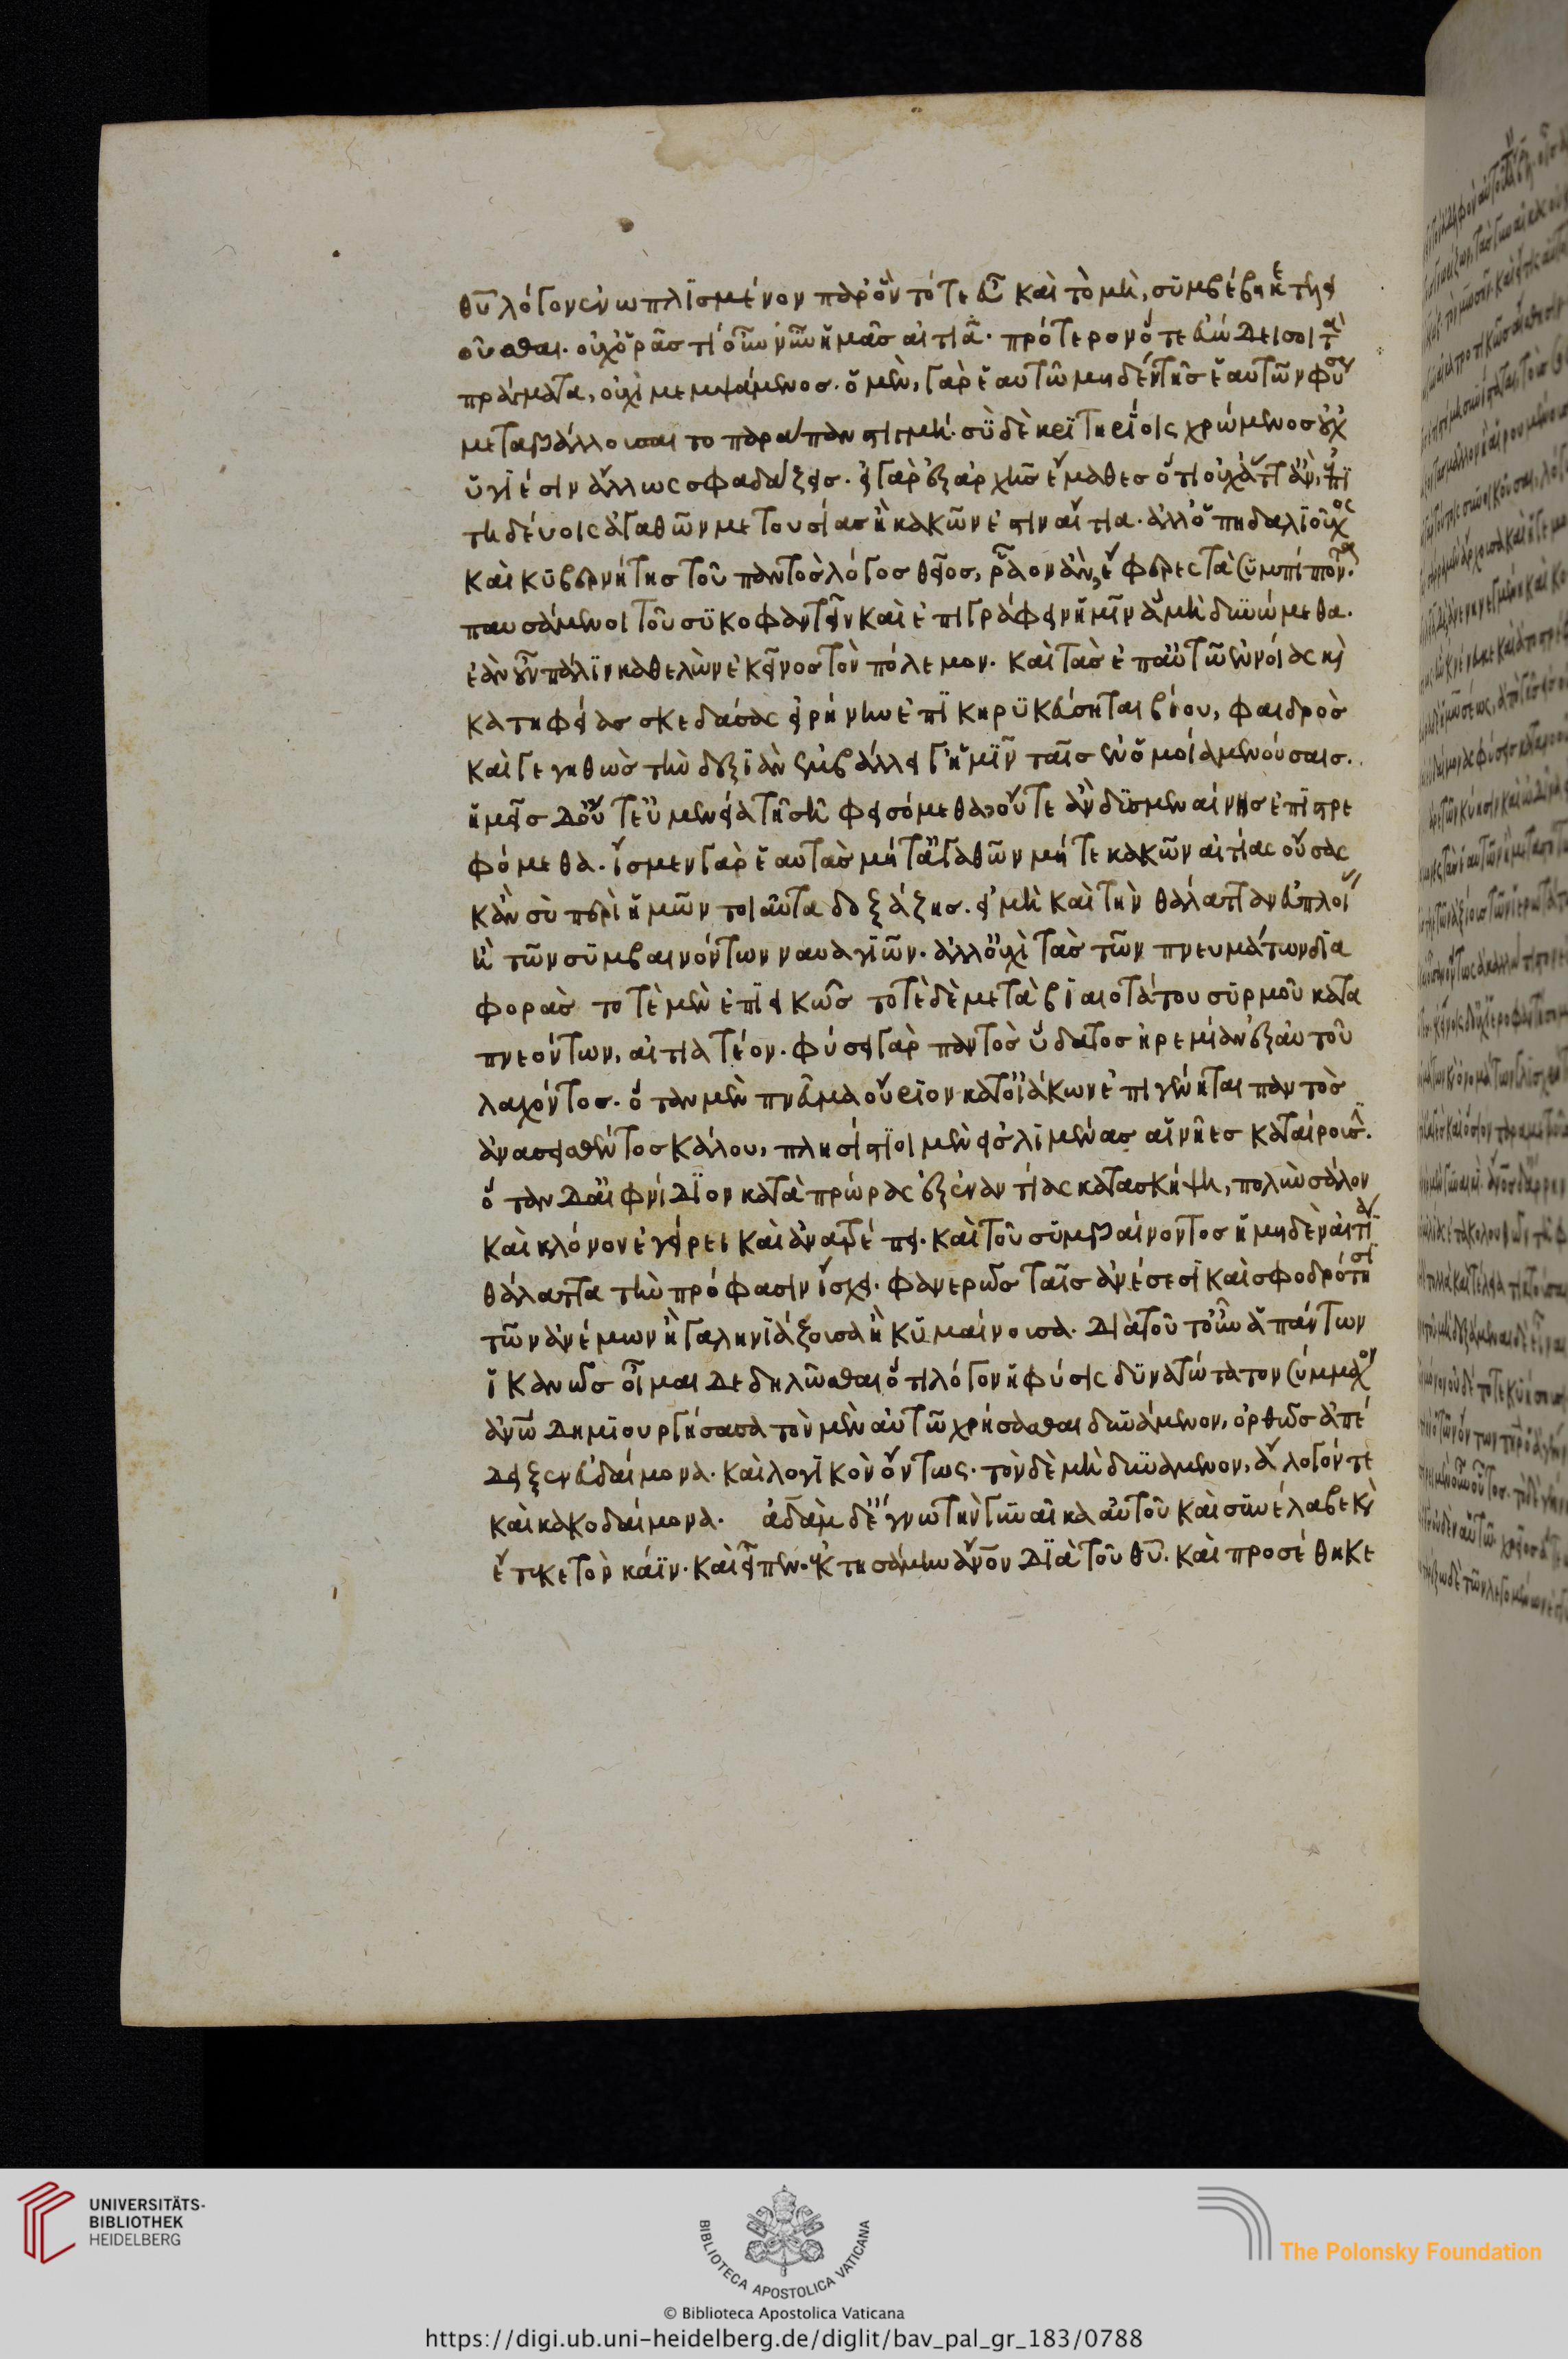 θυ̅ λόγον ἐνωπλϊσμένον παρ' ὃν τό τε εὖ καὶ τὸ μὴ, σϋμβέβηκε τελει
οῦσθαι. οὐχ' ὁρᾶς τί οὖν νῦν ἡμᾶς αἰτιᾶ. πρότερον ὅτε εὐώδει σοι τὰ
πράγματα, οὐχὶ μεμψάμενος. ὁ μὲν, γὰρ ἑαυτῶ μηδὲν τῆς ἑαυτῶν φύσ
μεταβάλλουσαι το παράπαν ἐσμέν. σὺ δὲ κριτηρίοις χρώμενος οὐχ
ὑγϊέσιν ἄλλως σφαδάζεις. εἰ γὰρ ἐξ ἀρχῆς ἔμαθες ὅτι οὐχ' ἅττ' ἂν, ἐπϊ
τηδεύοις ἀγαθῶν μετουσίας ἢ κακῶν ἐστιν αἴτια. ἀλλ' ὁ πηδαλϊοῦχος
καὶ κϋβερνήτης τοῦ παντὸς λόγος θεῖος, ῥᾶον ἂν, ἔφερες τὰ συμπίπτοντα.
παυσάμενοι τοῦ σϋκοφαντεῖν καὶ ἐπιγράφειν ἡμῖν ἃ μὴ δϋνώμεθα.
ἐὰν οὖν πάλϊν καθελὼν ἐκεῖνος τὸν πόλεμον. καὶ τὰς ἐπ' αὐτῶ συννοίας καὶ
κατηφείας σκεδάσας εἰρήνην ἐπϊκηρϋκεύσηται βίου, φαιδρὸς
καὶ γεγηθὼς τὴν δεξϊὰν ἐμβάλλει γ' ἡμϊν ταῖς ἐν ὁμοίω μενούσαις.
ἡμεῖς δ' οὔτ' εὐμενεία τῆ σῆ φεισόμεθα, οὔτε ἂν δϋσμεναίνης ἐπϊστρε
φόμεθα. ἴσμεν γὰρ ἑαυτὰς μήτ' ἀγαθῶν μήτε κακῶν αἰτίας οὔσας
κἂν σὺ περὶ ἡμῶν τοιαῦτα δοξάζης. εἰ μὴ καὶ τὴν θάλατταν εὐπλοί
ἢ τῶν σϋμβαινόντων ναυαγϊῶν. ἀλλ' οὐχὶ τὰς τῶν πνευμάτων δϊα
φορὰς τοτὲ μὲν ἐπϊεικῶς τοτὲ δὲ μετὰ βϊαιοτάτου σϋρμοῦ κατα
πνεόντων, αἰτιατέον. φύσει γὰρ παντὸς ὕδατος ἠρεμίαν ἐξ αὑτοῦ
λαχόντος. ὅταν μὲν πνεῦμα οὔριον κατ' οἰάκων ἐπιγένηται παντὸς
ἀνασεισθέντος κάλου, πλησίστιοι μὲν εἰς λϊμένας αἱ νῆες καταίρουσιν.
ὅταν δ' αἰφνίδϊον κατὰ πρώρας ἐξ ἐναντίας κατασκήψη, πολὺν σάλον
καὶ κλόνον ἐγείρει καὶ ἀνατρέπει. καὶ τοῦ σϋμβαίνοντος ἡ μηδὲν αἰτϊα
θάλαττα τὴν πρόφασιν ἴσχει. φανερῶς ταῖς ἀνέσεσϊ καὶ σφοδρότησι
τῶν ἀνέμων ἢ γαληνϊάζουσα ἢ κϋμαίνουσα. διὰ τοῦ τοίνϋν ἁπάντων
ἱκανῶς οἶμαι δεδηλῶσθαι ὅτι λόγον ἡ φύσις δϋνατώτατον σύμμαχον
ἀνω̅ δημϊουργήσασα τὸν μὲν αὐτῶ χρήσασθαι δϋνάμενον, ὀρθῶς ἀπέ
δειξεν εὐδαίμονα. καὶ λογϊκὸν ὄντως. τὸν δὲ μὴ δϋνάμενον, ἄλογόν τε
καὶ κακοδαίμονα. ἀδὰμ δὲ ἔγνω τὴν γϋναῖκα αὐτοῦ καὶ σϋνέλαβε καὶ
ἔτεκε τὸν κάϊν. καὶ εἶπεν. ἐκτησάμην ἄνο̅ν δϊὰ τοῦ θυ̅. καὶ προσέθηκε
UNIVERSITÄTS-
BIBLIOTHEK
HEIDELBERG
BIBLIOTECA APOSTOLICA VATICANA
The Polonsky Foundation
© Biblioteca Apostolica Vaticana
https://digi.ub.uni-heidelberg.de/diglit/bav_pal_gr_183/0788